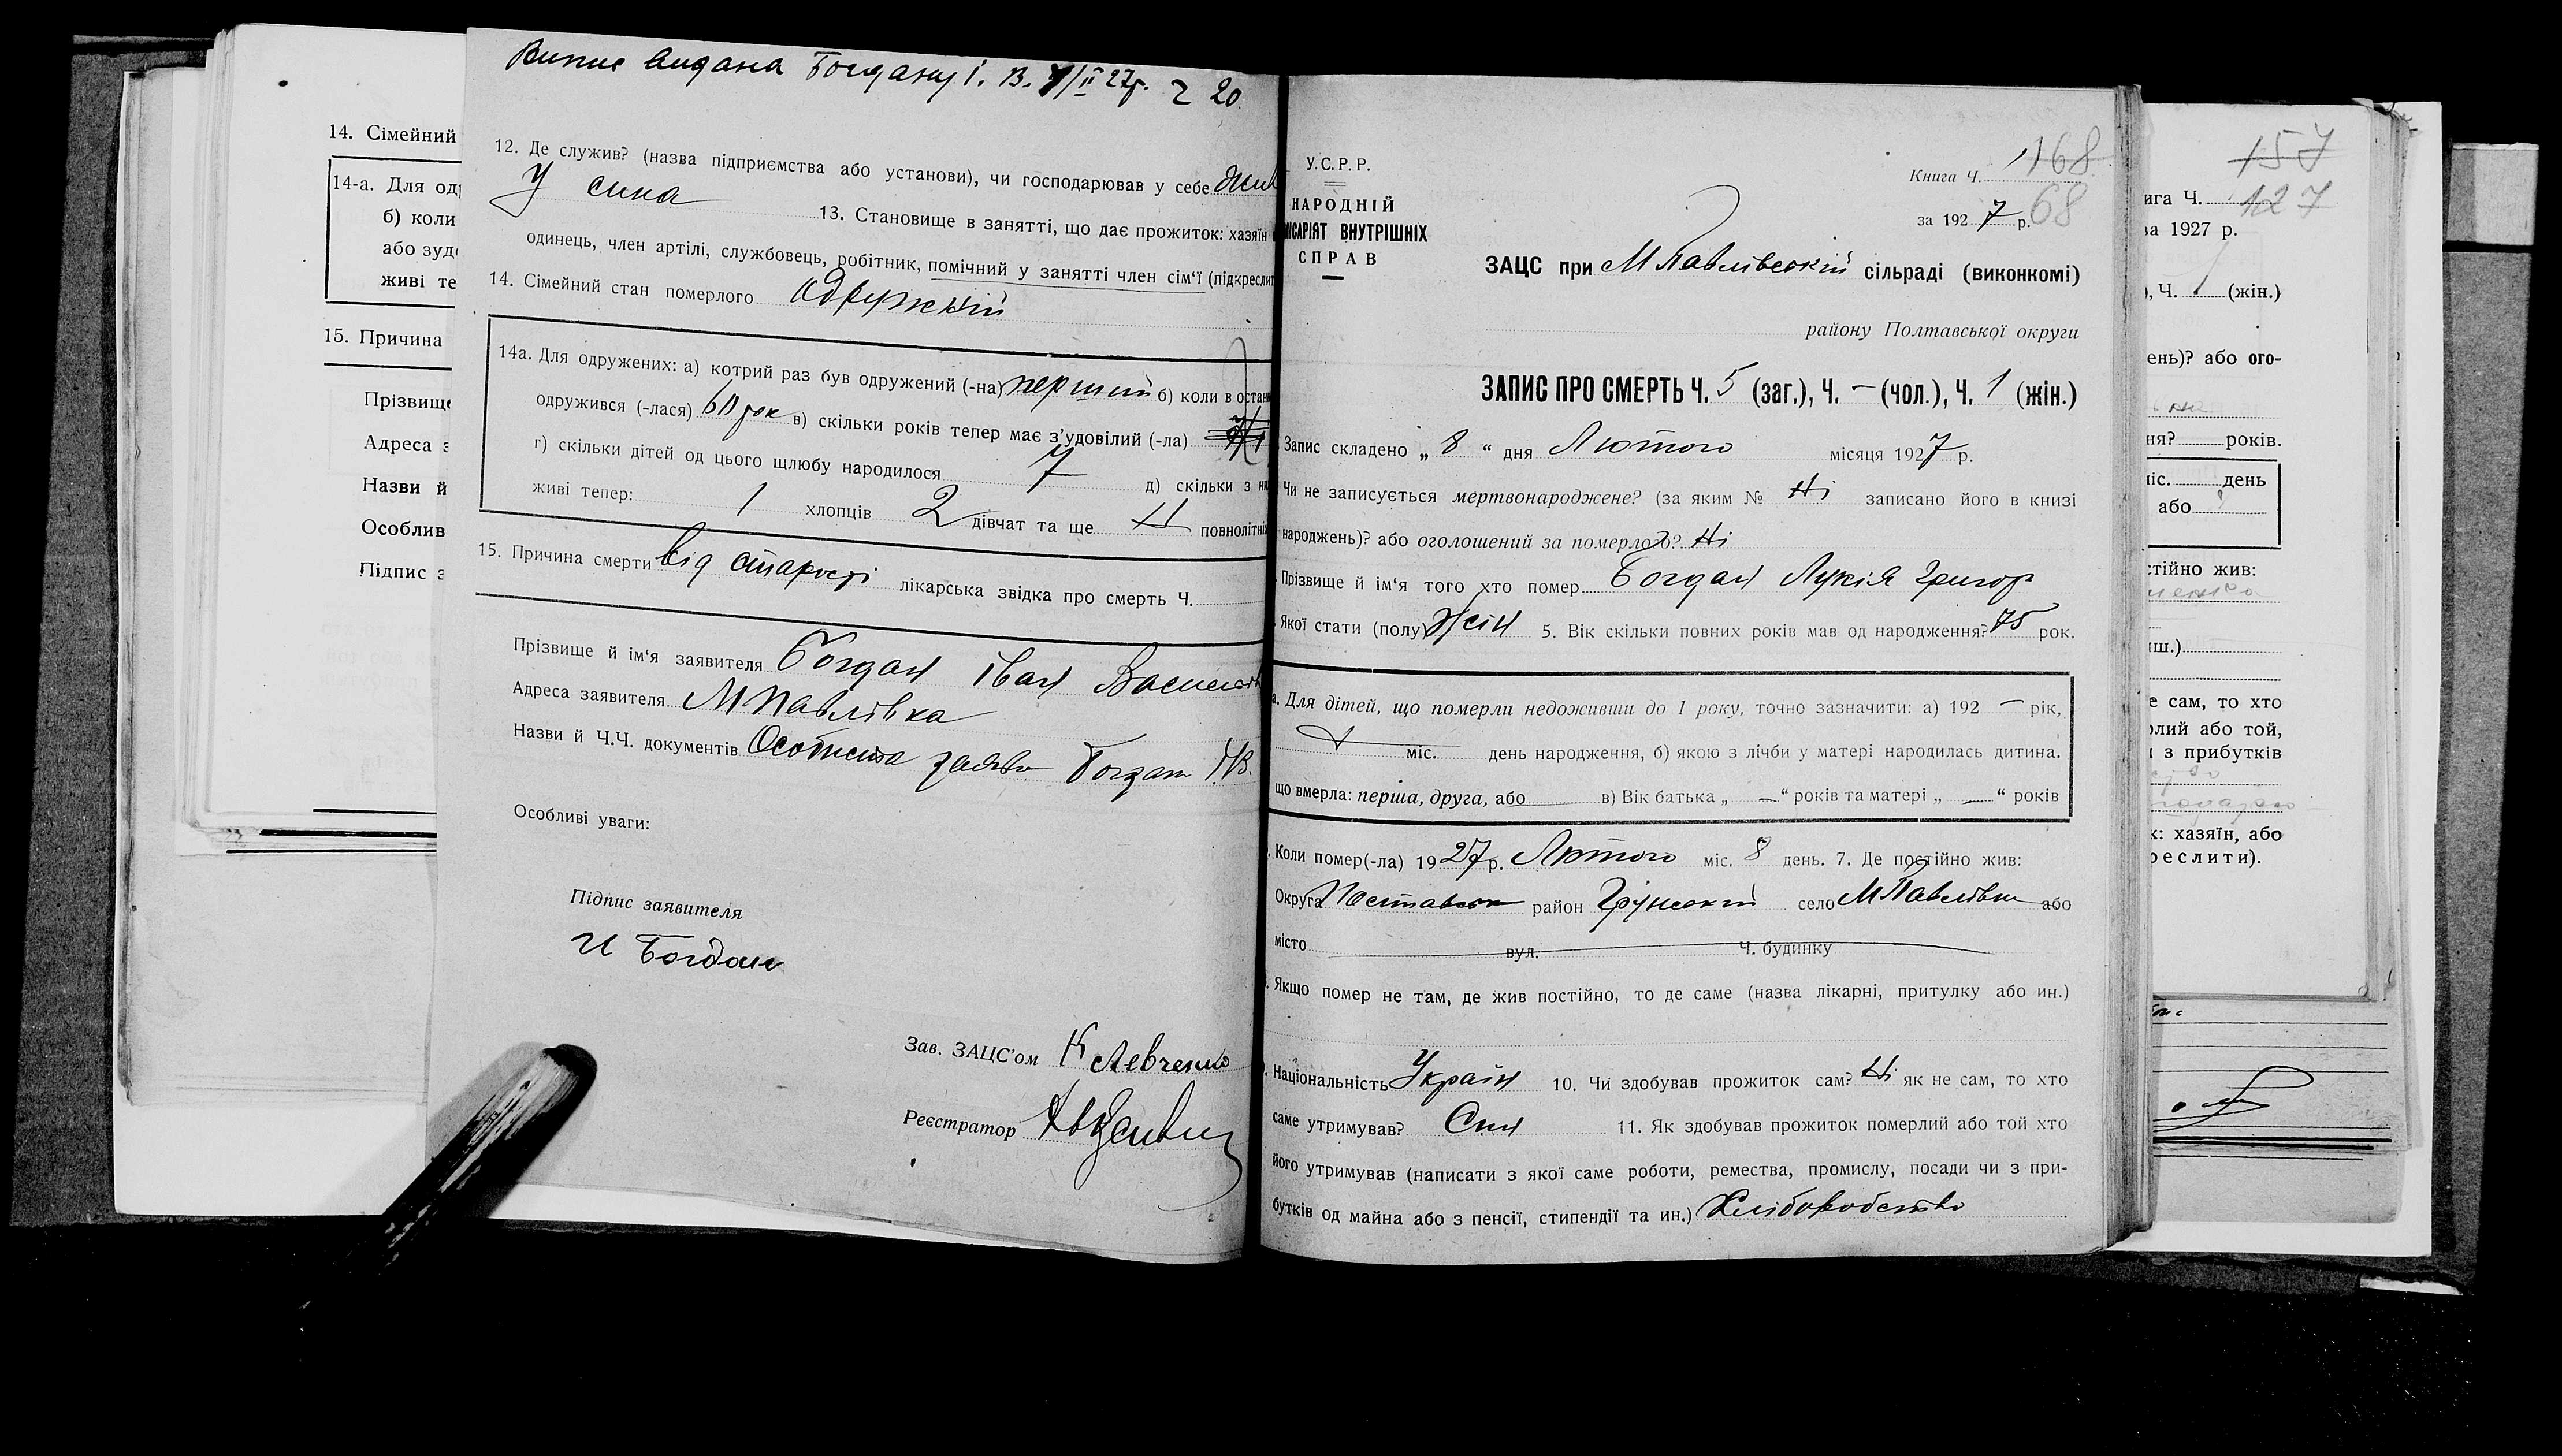 14. Сімейний
14-а. Для од
б) коли
або зуд
живі те
15. Причина
Прізвище
Адреса з
Назви й
Особлив
Підпис з
Випис видана Богдану І. В. /II 27р. 20
12. Де служив? (назва підприємства або установи), чи господарював у себе жив
у сина 13. Становище в занятті, що дає прожиток: хазяїн
одинець, член артілі, службовець, робітник, помічний у занятті член сім'ї (підкреслит
14. Сімейний стан померлого одружній
14а. Для одружених: а) котрий раз був одружений (-на) перший б) коли в остан
одружився (-лася) 60 рок в) скільки років тепер має з'удовілий (-ла)
г) скільки дітей од цього щлюбу народилося 7 д) скільки з ни
живі тепер: 1 хлопців 2 дівчат та ще повнолітніх
15. Причина смерти від старості лікарська звідка про смерть Ч.
Прізвище й ім'я заявителя Богдан Іван
Адреса заявителя М Павлівка
Назви й Ч.Ч. документів Особиста заява Богдан І.В.
Особливі уваги:
Підпис заявителя
И Богдан
Зав. ЗАЦС'ом К Левченко
Реєстратор
У.С.Р.Р.
НАРОДНІЙ
МІСАРІЯТ ВНУТРІШНІХ
СПРАВ
Книга Ч. 168
за 1927 р. 68
ЗАЦС при М Павлівській сільраді (виконкомі)
району Полтавської округи
ЗАПИС ПРО СМЕРТЬ Ч. 5 (заг.), Ч. — (чол.), Ч. 1 (жін.)
Запис складено „ 8 “ дня Лютого місяця 1927 р.
Чи не записується мертвонароджене? (за яким № Ні записано його в книзі
народжень)? або оголошений за померлого? Ні
Прізвище й ім'я того хто помер Богдан Лукія Григор
Якої стати (полу) Жін 5. Вік скільки повних років мав од народження? 75 рок.
а. Для дітей, що померли недоживши до 1 року, точно зазначити: а) 192 — рік,
міс. день народження, б) якою з лічби у матері народилась дитина.
що вмерла: перша, друга, або в) Вік батька „ — “ років та матері „ — “ років
Коли помер(-ла) 1927 р. Лютого міс. 8 день. 7. Де постійно жив:
Округа район Грунський село М Павлівка або
місто вул. Ч. будинку
Якщо помер не там, де жив постійно, то де саме (назва лікарні, притулку або ин.)
Національність Україн 10. Чи здобував прожиток сам? Ні як не сам, то хто
саме утримував? Син 11. Як здобував прожиток померлий або той хто
його утримував (написати з якої саме роботи, ремества, промислу, посади чи з при-
бутків од майна або з пенсії, стипендії та ин.) Хліборобство
157
ига Ч. 127
за 1927 р.
), Ч. 1 (жін.)
ень)? або ого-
ня? років.
іс. день
або
стійно жив:
иш.)
е сам, то хто
лий або той,
з прибутків
к: хазяїн, або
реслити).